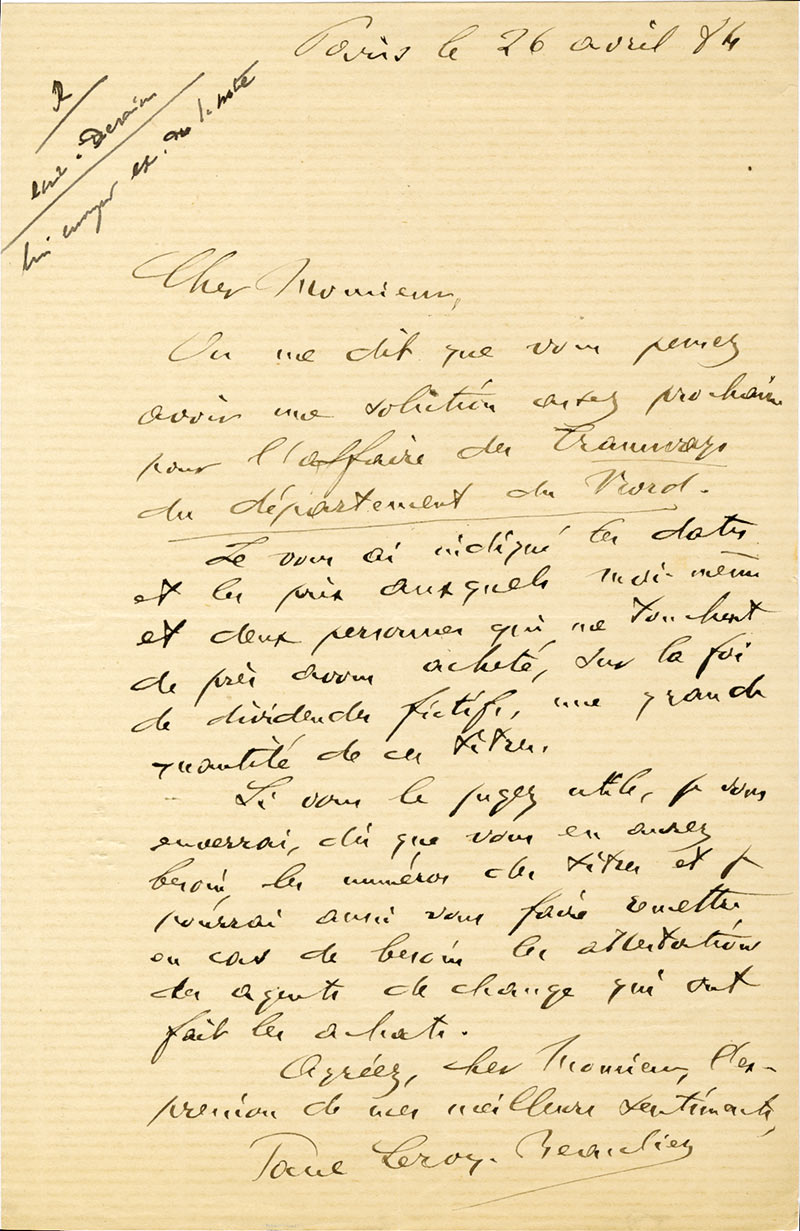 Paris le 26 avril 84
Cher Monsieur,
On me dit que vous pensez
avoir une solution assez prochaine
pour l'affaire des Tramways
du département du Nord.
Je vous ai indiqué les dates
et les prix auxquels moi-même
et deux personnes qui me touchent
de près avons acheté, sur la foi
de dividendes fictifs, une grande
quantité de ces titres.
Si vous le jugez utile, je vous
enverrai, dès que vous en aurez
besoin, les numéros des titres et je
pourrai aussi vous faire remettre
en cas de besoin les attestations
des agents de change qui ont
fait les achats.
Agréez, cher Monsieur, l'ex-
pression de mes meilleurs sentiments,
Paul Leroy-Beaulieu